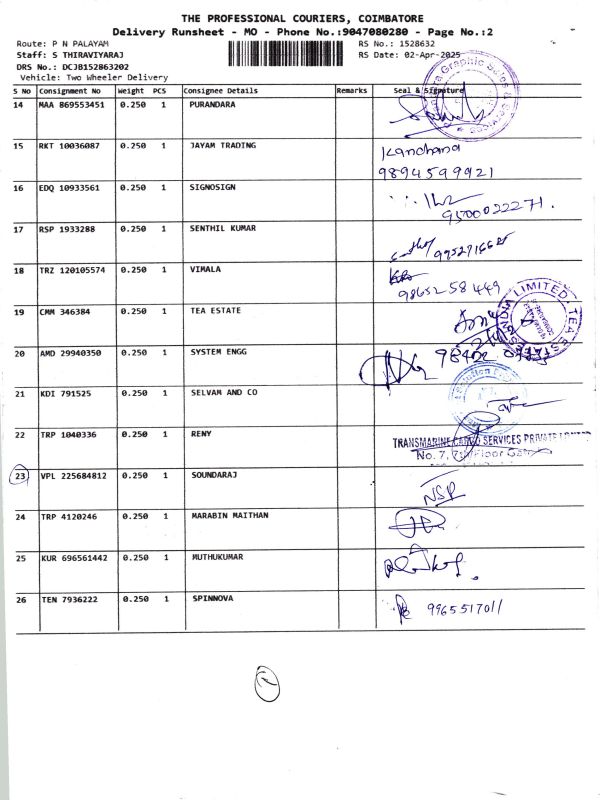 THE PROFESSIONAL COURIERS, COIMBATORE
Delivery Runsheet - MO - Phone No.:9047080280 - Page No.:2
Route: P N PALAYAM RS No.: 1528632
Staff: S THIRAVIYARAJ RS Date: 02-Apr-2025
DRS No.: DCJB152863202
Vehicle: Two Wheeler Delivery
S No Consignment No Weight PCS Consignee Details Remarks Seal & Signature
14 MAA 869553451 0.250 1 PURANDARA
15 RKT 10036087 0.250 1 JAYAM TRADING Kanchana
9894599921
16 EDQ 10933561 0.250 1 SIGNOSIGN
9500022271.
17 RSP 1933288 0.250 1 SENTHIL KUMAR
18 TRZ 120105574 0.250 1 VIMALA
98652 58 449
19 CMM 346384 0.250 1 TEA ESTATE
20 AMD 29940350 0.250 1 SYSTEM ENGG
21 KDI 791525 0.250 1 SELVAM AND CO
22 TRP 1040336 0.250 1 RENY
TRANSMARINE CARGO SERVICES PRIVATE LIMITED
No. 7, 7th Floor
23 VPL 225684812 0.250 1 SOUNDARAJ
NSP
24 TRP 4120246 0.250 1 MARABIN MAITHAN
25 KUR 696561442 0.250 1 MUTHUKUMAR
26 TEN 7936222 0.250 1 SPINNOVA 9965517011